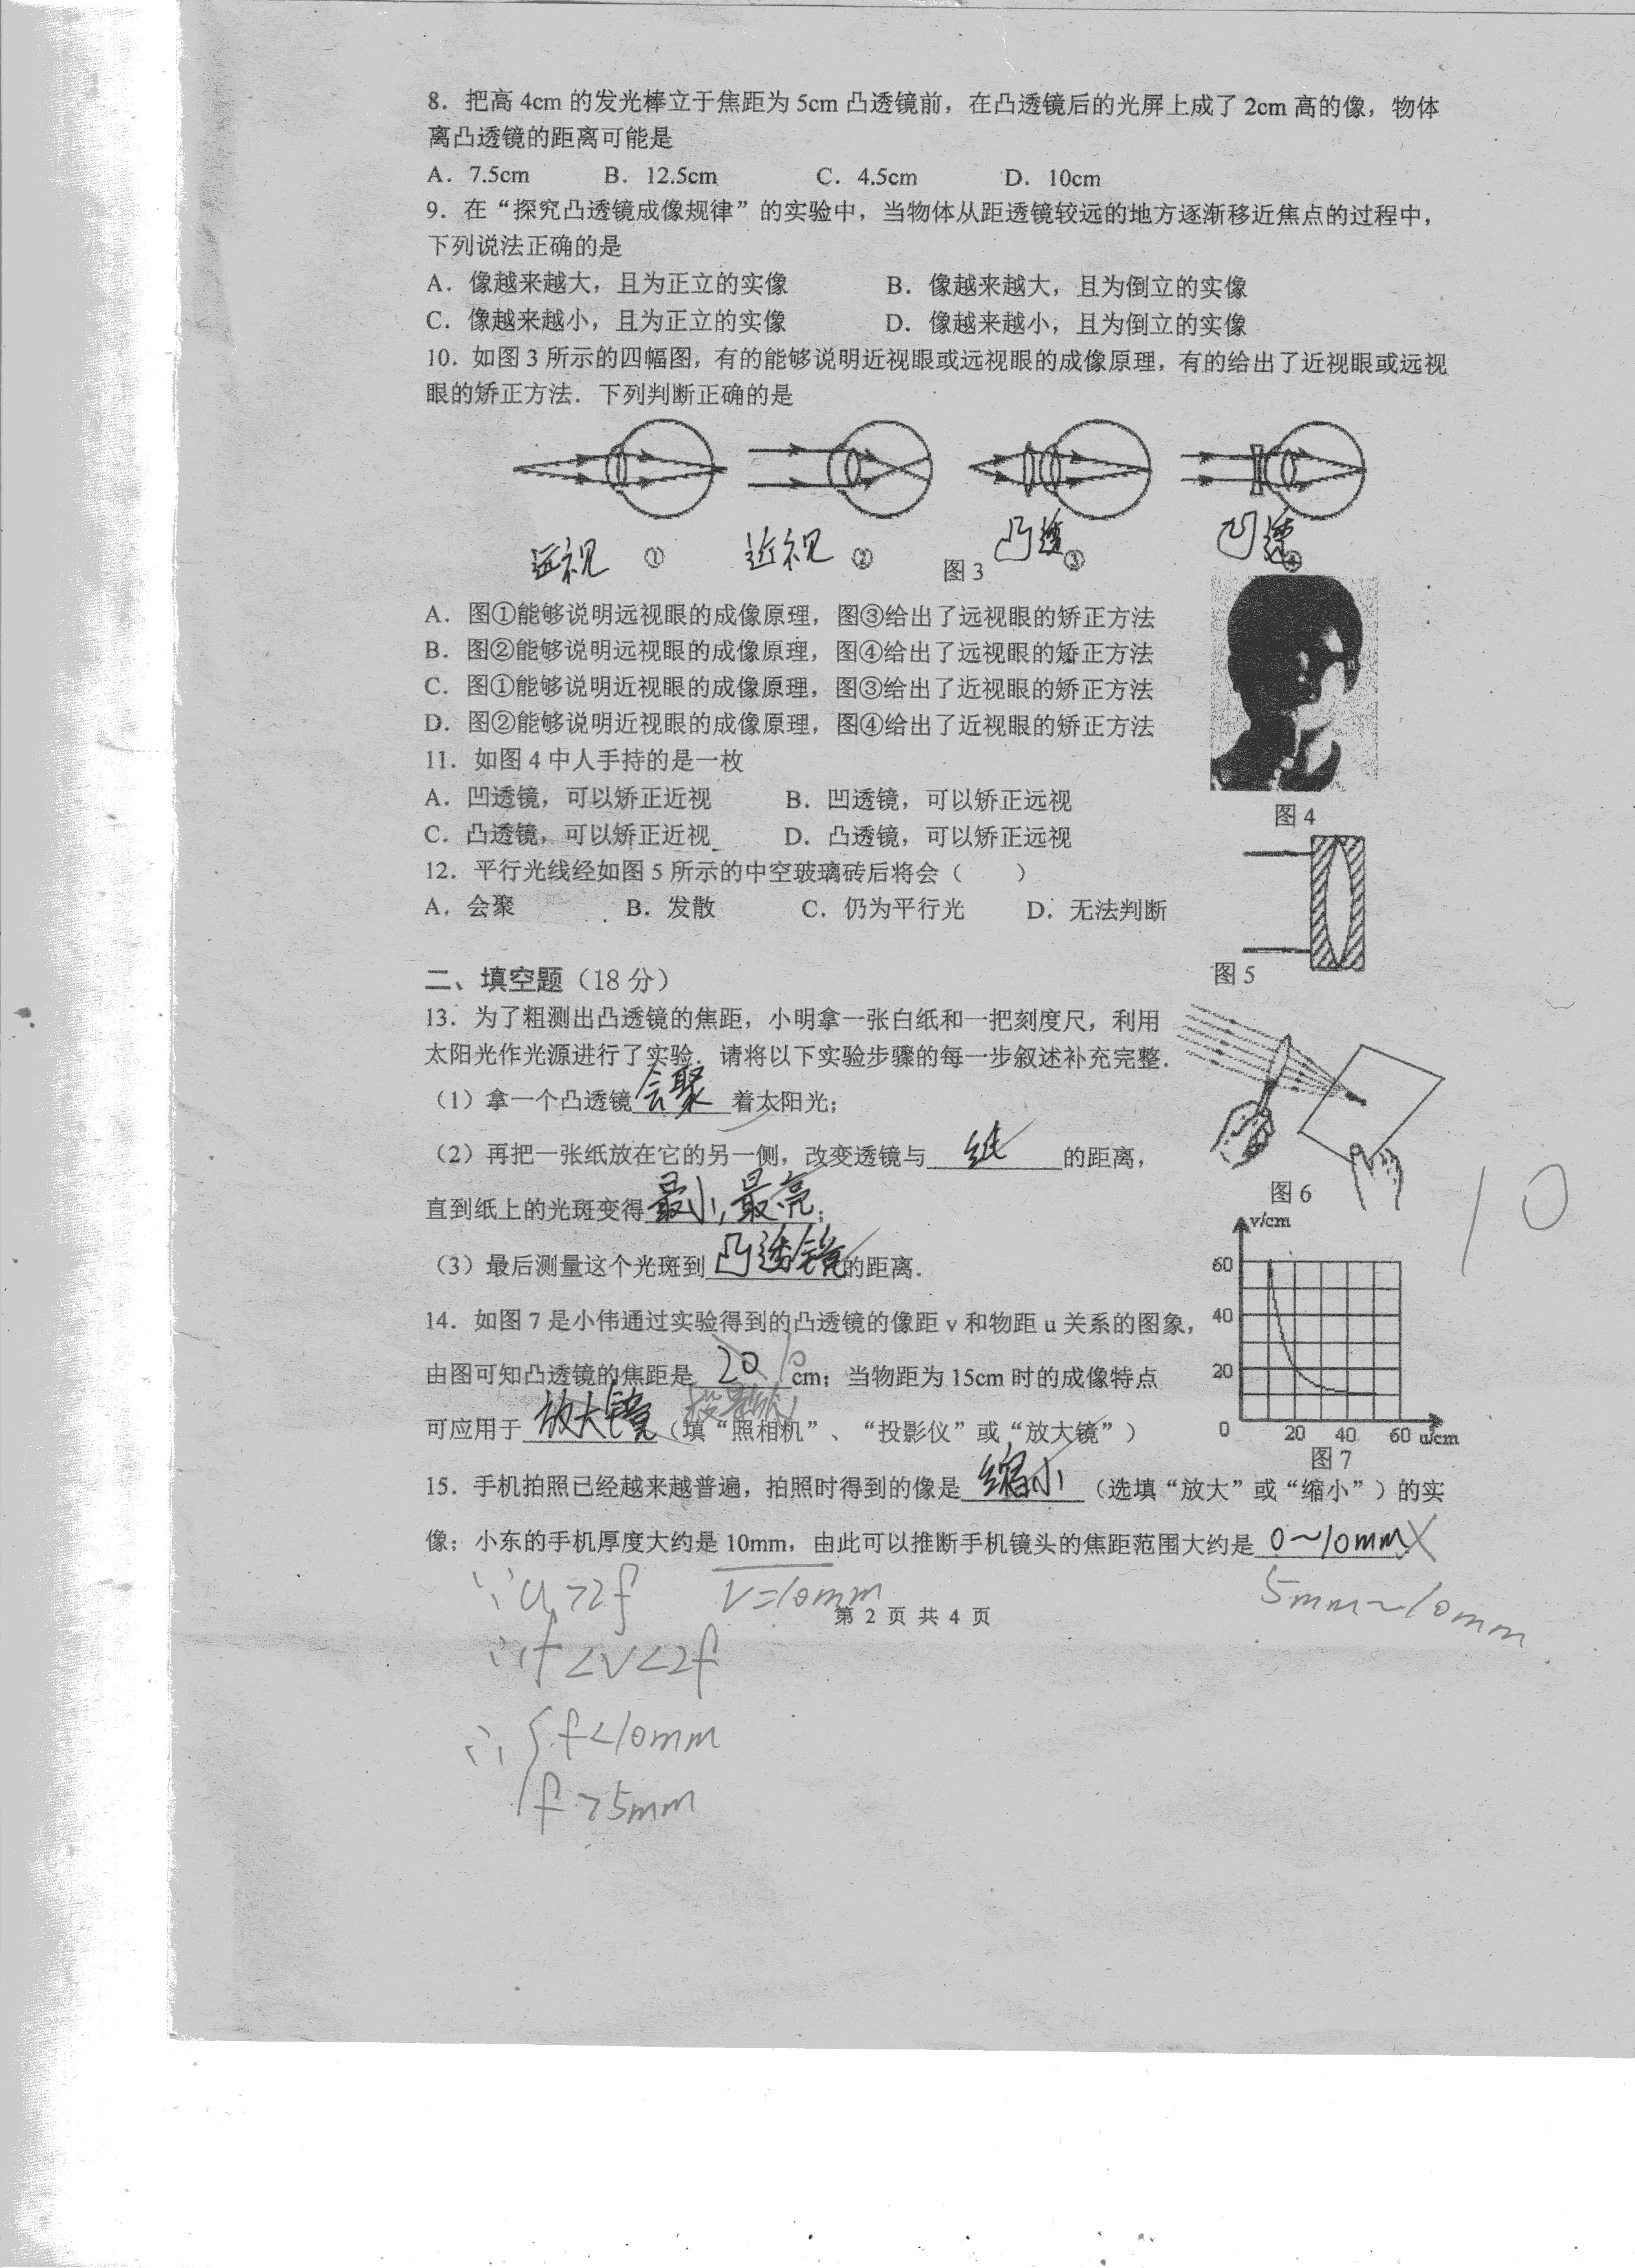 8. 把高 4cm 的发光棒立于焦距为 5cm 凸透镜前，在凸透镜后的光屏上成了 2cm 高的像，物体
离凸透镜的距离可能是
A. 7.5cm B. 12.5cm C. 4.5cm D. 10cm
9. 在“探究凸透镜成像规律”的实验中，当物体从距透镜较远的地方逐渐移近焦点的过程中，
下列说法正确的是
A. 像越来越大，且为正立的实像 B. 像越来越大，且为倒立的实像
C. 像越来越小，且为正立的实像 D. 像越来越小，且为倒立的实像
10. 如图 3 所示的四幅图，有的能够说明近视眼或远视眼的成像原理，有的给出了近视眼或远视
眼的矫正方法．下列判断正确的是
远视 ① 近视 ② 凸透 ③ 凹透 ④
图 3
A. 图①能够说明远视眼的成像原理，图③给出了远视眼的矫正方法
B. 图②能够说明远视眼的成像原理，图④给出了远视眼的矫正方法
C. 图①能够说明近视眼的成像原理，图③给出了近视眼的矫正方法
D. 图②能够说明近视眼的成像原理，图④给出了近视眼的矫正方法
11. 如图 4 中人手持的是一枚
A. 凹透镜，可以矫正近视 B. 凹透镜，可以矫正远视
图 4
C. 凸透镜，可以矫正近视 D. 凸透镜，可以矫正远视
12. 平行光线经如图 5 所示的中空玻璃砖后将会（ ）
A. 会聚 B. 发散 C. 仍为平行光 D. 无法判断
图 5
二、填空题（18 分）
13. 为了粗测出凸透镜的焦距，小明拿一张白纸和一把刻度尺，利用
太阳光作光源进行了实验．请将以下实验步骤的每一步叙述补充完整．
（1）拿一个凸透镜会聚着太阳光；
（2）再把一张纸放在它的另一侧，改变透镜与 纸 的距离，
图 6
10
直到纸上的光斑变得最小，最亮；
（3）最后测量这个光斑到凸透镜的距离．
14. 如图 7 是小伟通过实验得到的凸透镜的像距 v 和物距 u 关系的图象，
由图可知凸透镜的焦距是 20 10 cm；当物距为 15cm 时的成像特点
投影仪
可应用于 放大镜（填“照相机”、“投影仪”或“放大镜”）
v/cm
60
40
20
0 20 40 60 u/cm
图 7
15. 手机拍照已经越来越普遍，拍照时得到的像是 缩小 （选填“放大”或“缩小”）的实
像；小东的手机厚度大约是 10mm，由此可以推断手机镜头的焦距范围大约是 0~10mm
∵u>2f v=10mm 5mm~10mm
第 2 页 共 4 页
∴f<v<2f
∴{f<10mm
f>5mm